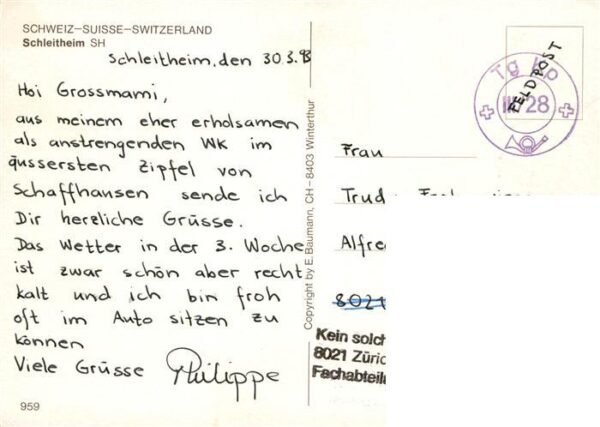 SCHWEIZ–SUISSE–SWITZERLAND
Schleitheim SH
Schleitheim, den 30.3.93
Hoi Grossmami,
aus meinem eher erholsamen
als anstrengenden WK im
äussersten Zipfel von
Schaffhausen sende ich
Dir herzliche Grüsse.
Das Wetter in der 3. Woche
ist zwar schön aber recht
kalt und ich bin froh
oft im Auto sitzen zu
können
Viele Grüsse Philippe
959
Copyright by E. Baumann, CH–8403 Winterthur
Tg Kp
III/28
FELDPOST
Frau
Trud
Alfre
8021
Kein solch
8021 Züric
Fachabteil